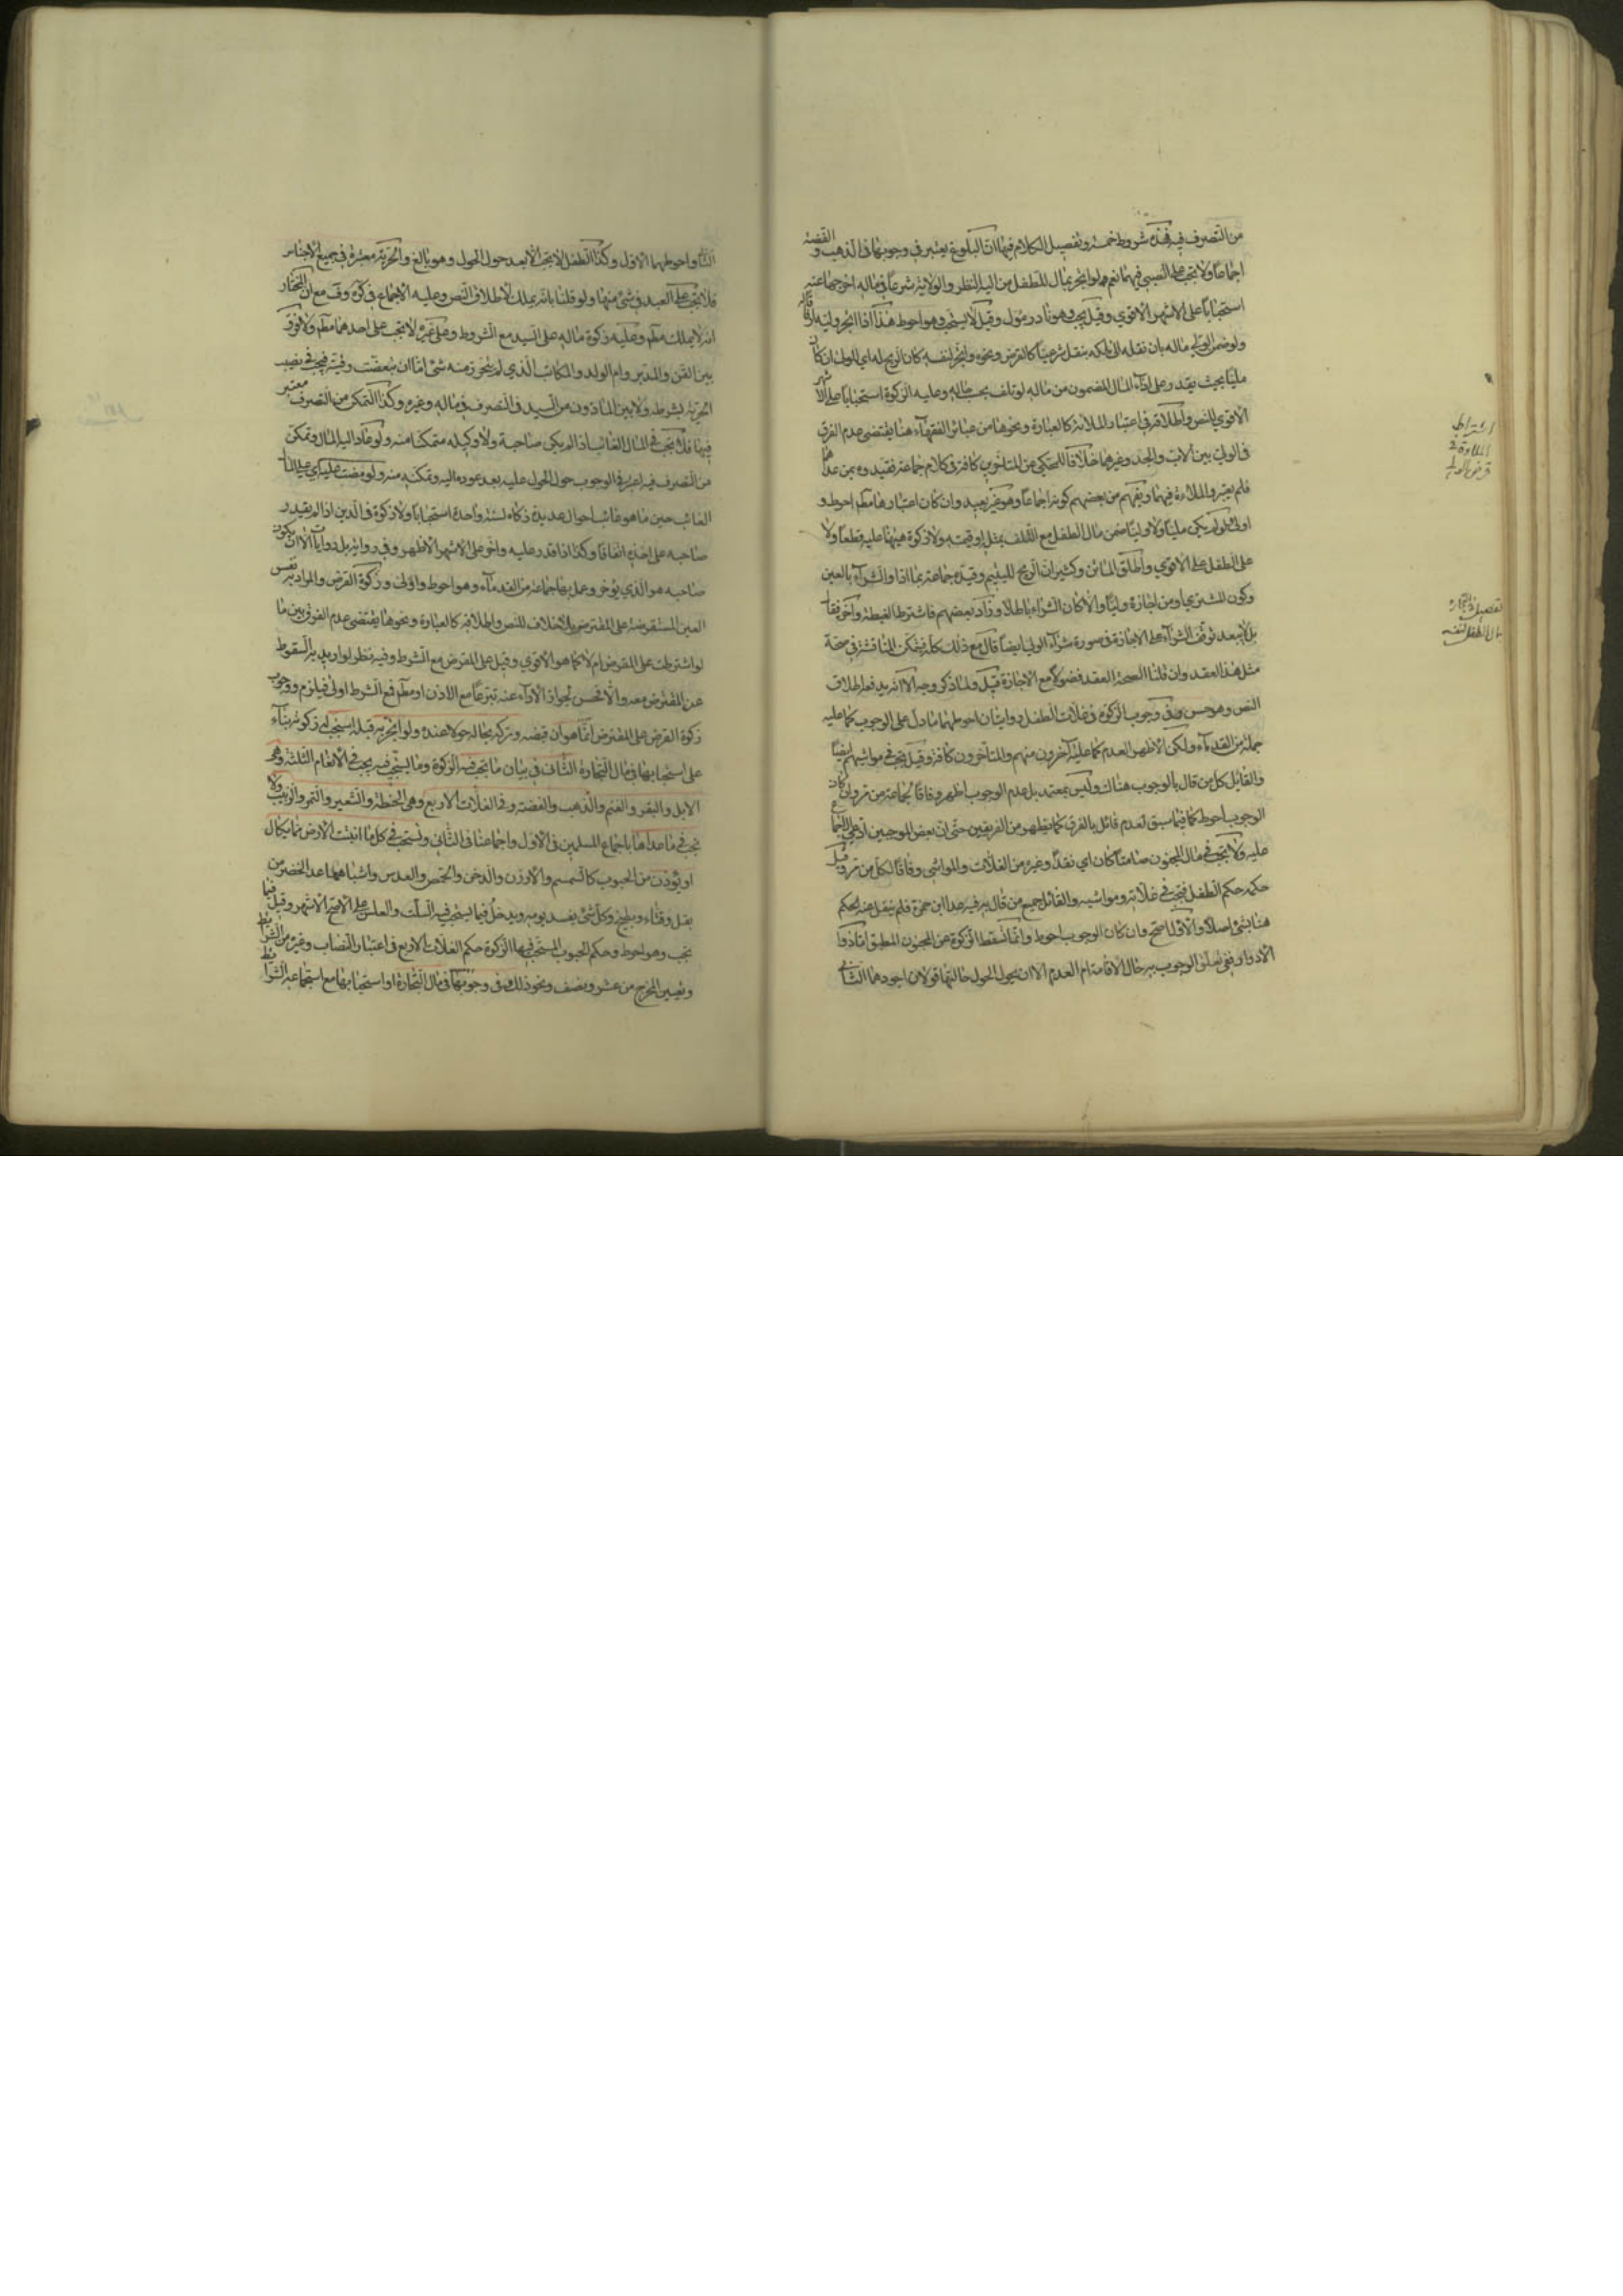 من التصرف فيه فهذه شروط خمسة وتفصيل الكلام فيها ان البلوغ يعتبر في وجوبها في الذهب والفضة
اجماعا ولا تجب على الصبي فيهما نعم لو اتجر بمال الطفل من اليه النظر والولاية شرعا في ماله اخرجها عنه
استحبابا على الاشهر الاقوي وقيل يجب وهو نادر مؤل وقيل لا يستحب وهو احوط هذا اذا اتجر وليه
ولو ضمن الولي ماله بان نقله الى ملكه بنقل شرعي كالقرض ونحوه واتجر لنفسه كان الربح له اي للولي ان كان
مليا بحيث يقدر على اداء المال المضمون من ماله لو تلف بحسب حاله وعليه الزكوة استحبابا على الاشهر
الاقوي للنص واطلاقه في اعتبار الملائة كالعبارة ونحوها من عبائر الفقهاء هنا يقتضي عدم الفرق
في الولي بين الاب والجد وغيرهما خلافا للمحكي عن المتاخرين كافة وكلام جماعة فقيدوه بمن عداهما
فلم يعتبروا الملاءة فيهما ويفهم من بعضهم كونه اجماعا وهو غير بعيد وان كان اعتبارها مطم احوط و
اولى ولو لم يكن مليا ولا وليا ضمن مال الطفل مع التلف بمثله او قيمته ولا زكوة هيهنا عليه قطعا ولا
على الطفل على الاقوي واطلق الماتن وكثير ان الربح لليتيم وقيده جماعة بما اذا وقع الشراء بالعين
وكون المشتري وليا او من اجازه وليا والا كان الشراء باطلا وزاد بعضهم فاشترط الغبطة واخر فقال
بل لا يبعد توقف الشراء على الاجازة في صورة شراء الولي ايضا قال مع ذلك كله يمكن المناقشة في صحة
مثل هذا العقد وان قلنا بصحة العقد فضولا مع الاجازة قيل ولما ذكر وجه الا انه يدفعه اطلاق
النص وهو حسن وفي وجوب الزكوة في غلات الطفل روايتان احوطهما ما دل على الوجوب كما عليه
جملة من القدماء ولكن الاظهر العدم كما عليه اخرون منهم والمتاخرون كافة وقيل تجب في مواشيهم ايضا
والقائل كل من قال بالوجوب هناك وليس بمعتمد بل عدم الوجوب اظهر وفاقا لجماعة من مر وان كان
الوجوب احوط كما فيما سبق لعدم قائل بالفرق كما يظهر من الفريقين حتى ان بعض الموجبين ادعى الاجماع
عليه ولا تجب في مال المجنون صامتا كان اي نقدا وغيره من الغلات والمواشي وفاقا لكل من مر وقيل
حكمه حكم الطفل فتجب في غلاته ومواشيه والقائل جميع من قال به فيه عدا ابن حمزة فلم ينقل عنه الحكم
هنا بشئ اصلا والاول اصح وان كان الوجوب احوط وانما تسقط الزكوة عن المجنون المطبق اما ذوا
الادوار ففي تعلق الوجوب به حال الافاقة ام العدم الا ان يحول الحول حالتها قولان اجودهما الثاني
اشتراط
الملاوة في
قرض الولي
تفصيل التجارة
بمال الطفل لنفسه
واحوطهما الاول وكذا الطفل لا تجب الا بعد حول الحول وهو بالغ والحرية معتبرة في جميع الاجناس
فلا تجب على العبد في شئ منها ولو قلنا بانه يملك لاطلاق النص وعليه الاجماع في كره وف مع ان المختار
انه لا يملك مطم وعليه زكوة ماله على السيد مع الشروط وعلى غيره لا تجب على احدهما مطم ولا فرق
بين القن والمدبر وام الولد والمكاتب الذي لم يتحرر منه شئ اما ان تبعضت رقيته فيجب في نصيب
الحرية بشرطه ولا بين الماذون من السيد في التصرف في ماله وغيره وكذا التمكن من التصرف معتبر
فيها فلا تجب في المال الغائب اذا لم يكن صاحبه ولا وكيله متمكنا منه ولو عاد اليه المال وتمكن
من التصرف فيه اعتبر في الوجوب حول الحول عليه بعد عوده اليه وتمكنه منه ولو مضت عليه اي على المال
الغائب حين ما هو غائب احوال عديدة زكاه لسنة واحدة استحبابا ولا زكوة في الدين اذا لم يقدر
صاحبه على اخذه اتفاقا وكذا اذا قدر عليه واخر على الاشهر الاظهر وفي رواية بل روايات الا ان يكون
صاحبه هو الذي يؤخره وعمل بها جماعة من القدماء وهو احوط واولى وزكوة القرض والمراد به نفس
العين المستقرضة على المقترض بلا خلاف للنص واطلاقه كالعبارة ونحوها يقتضي عدم الفرق بين ما
لو اشترطت على المقرض ام لا كما هو الاقوي وقيل على المقرض مع الشرط وفيه نظر لو اريد به السقوط
عن المقترض معه والا فحسن لجواز الاداء عنه تبرعا مع الاذن او مطم فمع الشرط اولى فيلزم ووجوب
زكوة القرض على المقترض انما هو ان قبضه وتركه بحاله حولا عنده ولو اتجر به قبله استحب له زكوته بناء
على استحبابها في مال التجارة الثاني في بيان ما تجب فيه الزكوة وما يستحب فيه يجب في الانعام الثلثة وهي
الابل والبقر والغنم والذهب والفضة وفي الغلات الاربع وهي الحنطة والشعير والتمر والزبيب ولا
تجب في ما عداها باجماع المسلمين في الاول واجماعنا في الثاني وتستحب في كل ما انبتت الارض مما يكال
او يوزن من الحبوب كالسمسم والارز والدخن والحمص والعدس واشباهها عدا الخضر من
بقل وقثاء وبطيخ وكل شئ يفسد ليومه ويدخل فيما يستحب فيه السلت والعلس على الاصح الاشهر وقيل فيهما
يجب وهو احوط وحكم الحبوب المستحب فيها الزكوة حكم الغلات الاربع في اعتبار النصاب وغيره من الشرائط
وتعيين المخرج من عشر ونصف ونحو ذلك وفي وجوبها في مال التجارة او استحبابها مع استجماعه الشرائط